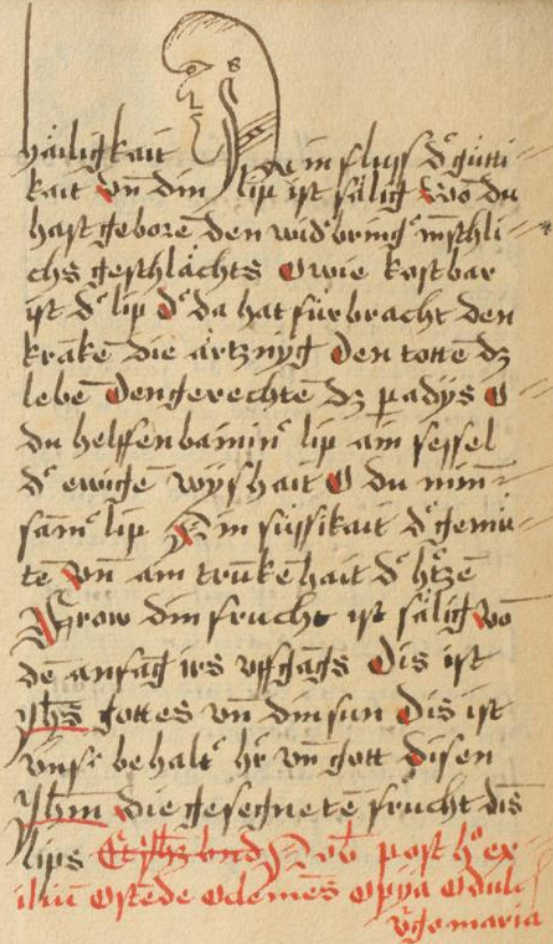 häiligkait Du in fluss d͛ gütti
kait vn̄ din lip ist sälig wō du
hast geborē den widbring͛ m̄schli
chs geschlächts O wie kostbar
ist d͛ lip d͛ da hat für bracht den
krākē die ärtznÿg Den tottē dz
lebē Den gerechtē dz padÿs O
du helffenbainin͛ lip ain sessel
d͛ ewigē wÿshait O du min̄
sam͛ lip in süssikait d͛ gemü
tē vn̄ ain trūkēhait d͛ h͛tzē
Frow din frucht ist sälig vō
dē anfāg irs vffgāgs Dis ist
yhs̄ gottes vn̄ din sun Dis ist
vnß behalt͛ hr̄ vn̄ gott disen
Yhm̄ die gesegnetē frucht dis̄
lips nob̄ post h͛ ex
iliū ostēde O clemēs O pya O dulc͛
v͛go maria